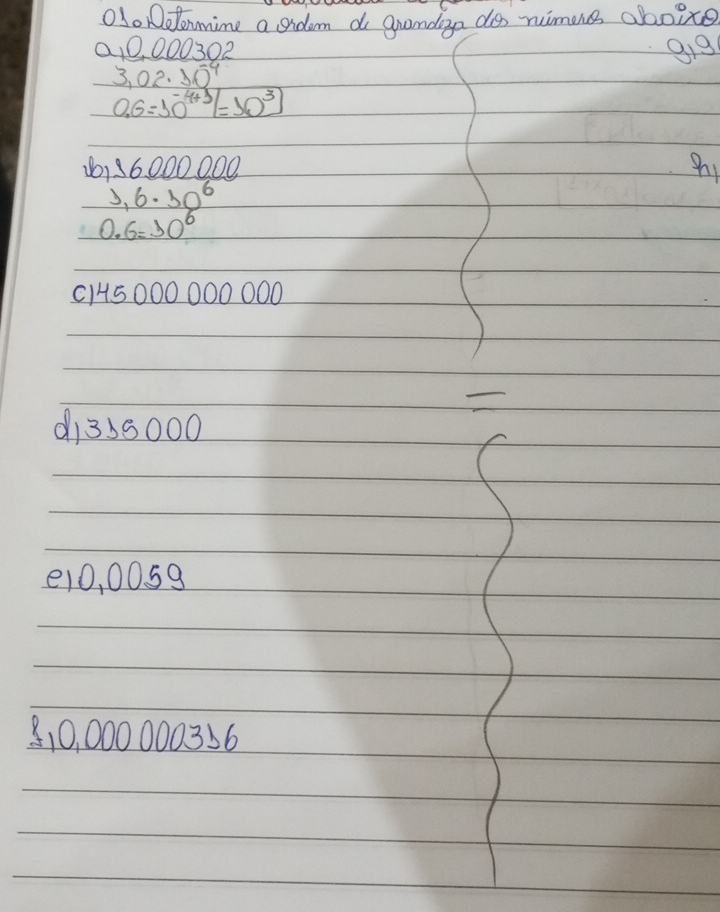 01. Determine a ordem de grandeza dos números abaixo.
a) 0,000302
3,02 · 10⁻⁴
O.G = 10⁻⁴⁺¹ = 10³
b) 16 000 000
1,6 · 10⁶
O.G = 10⁶
c) 45 000 000 000
d) 315 000
e) 0,0059
f) 0,000 000 316
g) 9
h)